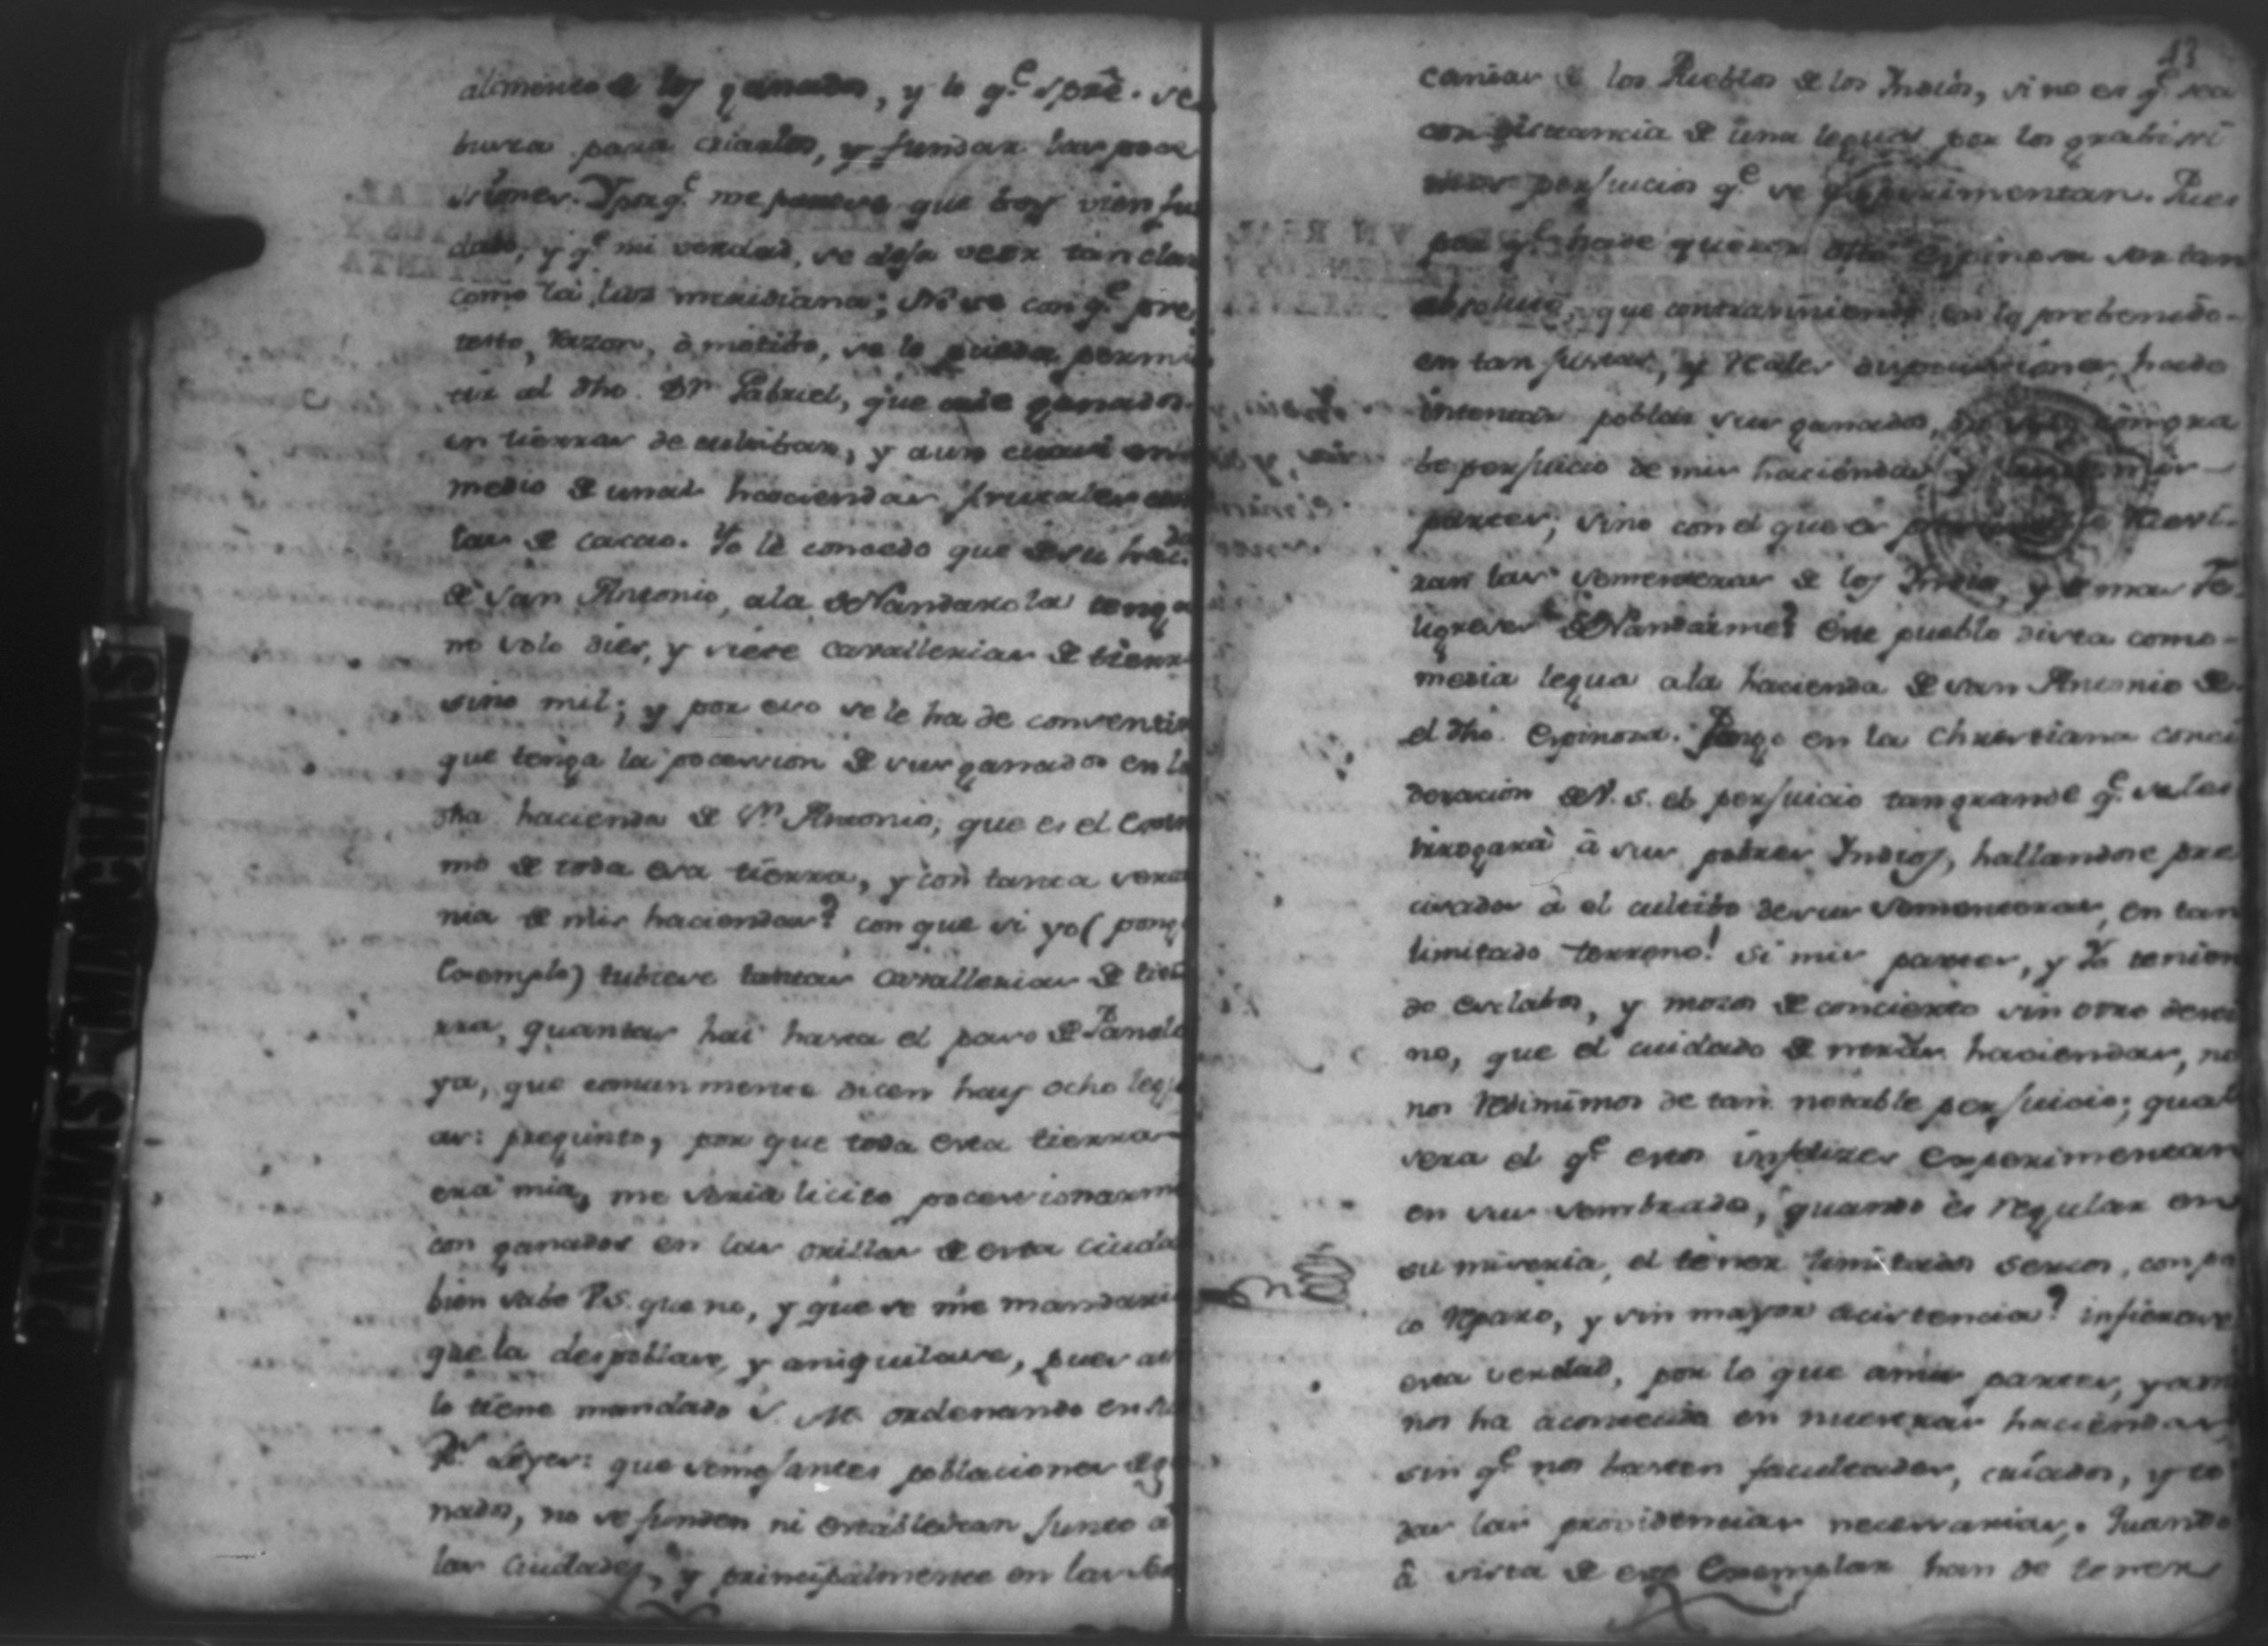 alimento de los ganados, y lo q.e spre. se
busca para criarlos, y fundar las poce
siones. Y porq.e me parece que boy vien fu
dado, y q.e mi verdad, se deja veer tan clara
como la luz meridiana; No se con q.e pre
testo, razon, ò motibo, se le pueda permi
tir al dho. Dn Gabriel, que crie ganados
en tierras de cultibar, y aun casi en
medio de unas haciendas frutales
tas de cacao. Yo le concedo que de su hac.da
de San Antonio, ala de Nandarola tenga
no solo dies, y siese cavallerias de tierra
sino mil; y por eso se le ha de consentir
que tenga la pocession de sus ganados en la
dha hacienda de Sn Antonio, que es el extre
mo de toda esa tierra, y con tanta verci
nia de mis haciendas? con que si yo (pong.
exemplo) tubiese tantas cavallerias de tie
rra, quantas hai hasta el paso de Panalo
ya, que comunmente dicen hay ocho legu
as: pregunto, por que toda esta tierra
era mia, me seria licito pocessionarme
con ganados en las orillas de esta ciuda
bien sabe V.S. que no, y que se me mandaria
que la despoblase, y aniquilase, pues asi
lo tiene mandado S. M. ordenando en su
R.s Leyes: que semejantes poblaciones de ga
nados, no se funden ni establescan junto à
las ciudades, y principalmente en las
13
canias de los Pueblos de los Indios, si no es q.e sea
con distancia de una legua por los grabissi
mos perjuicios q.e se experimentan. Pues
por q.e hade querer dho Espinosa ser tan
absoluto, que contraviniendo en lo prebenido
en tan justas, y reales disposiciones, hade
intentar poblar sus ganados, con gra
be perjuicio de mis haciendas y mis
partes; sino con el que es
zan las sementeras de los Indios, y demas Fe
ligreses de Nandaime? este pueblo dista como
media legua ala hacienda de San Antonio de
el dho. Espinosa. Pongo en la christiana conci
deracion de V.S. el perjuicio tan grande q.e se les
irrogara à sus pobres Indios, hallandose pre
cisados à el cultibo de sus sementeras, en tan
limitado terreno! Si mis partes, y Yo tenien
do esclabos, y mozos de concierto sin otro desti
no, que el cuidado de nras haciendas, no
nos redimimos de tan notable perjuicio; qual
sera el q.e estos infelizes experimentan
en sus sembrados, quando es regular en
su miseria, el tener limitados sercos, con po
co reparo, y sin mayor acistencia? infierase
esta verdad, por lo que amis partes, y ami
nos ha acontecido en nuestras haciendas,
sin q.e nos basten facultades, criados, y to
das las providencias necessarias. Quando
à vista de este exemplar han de tener